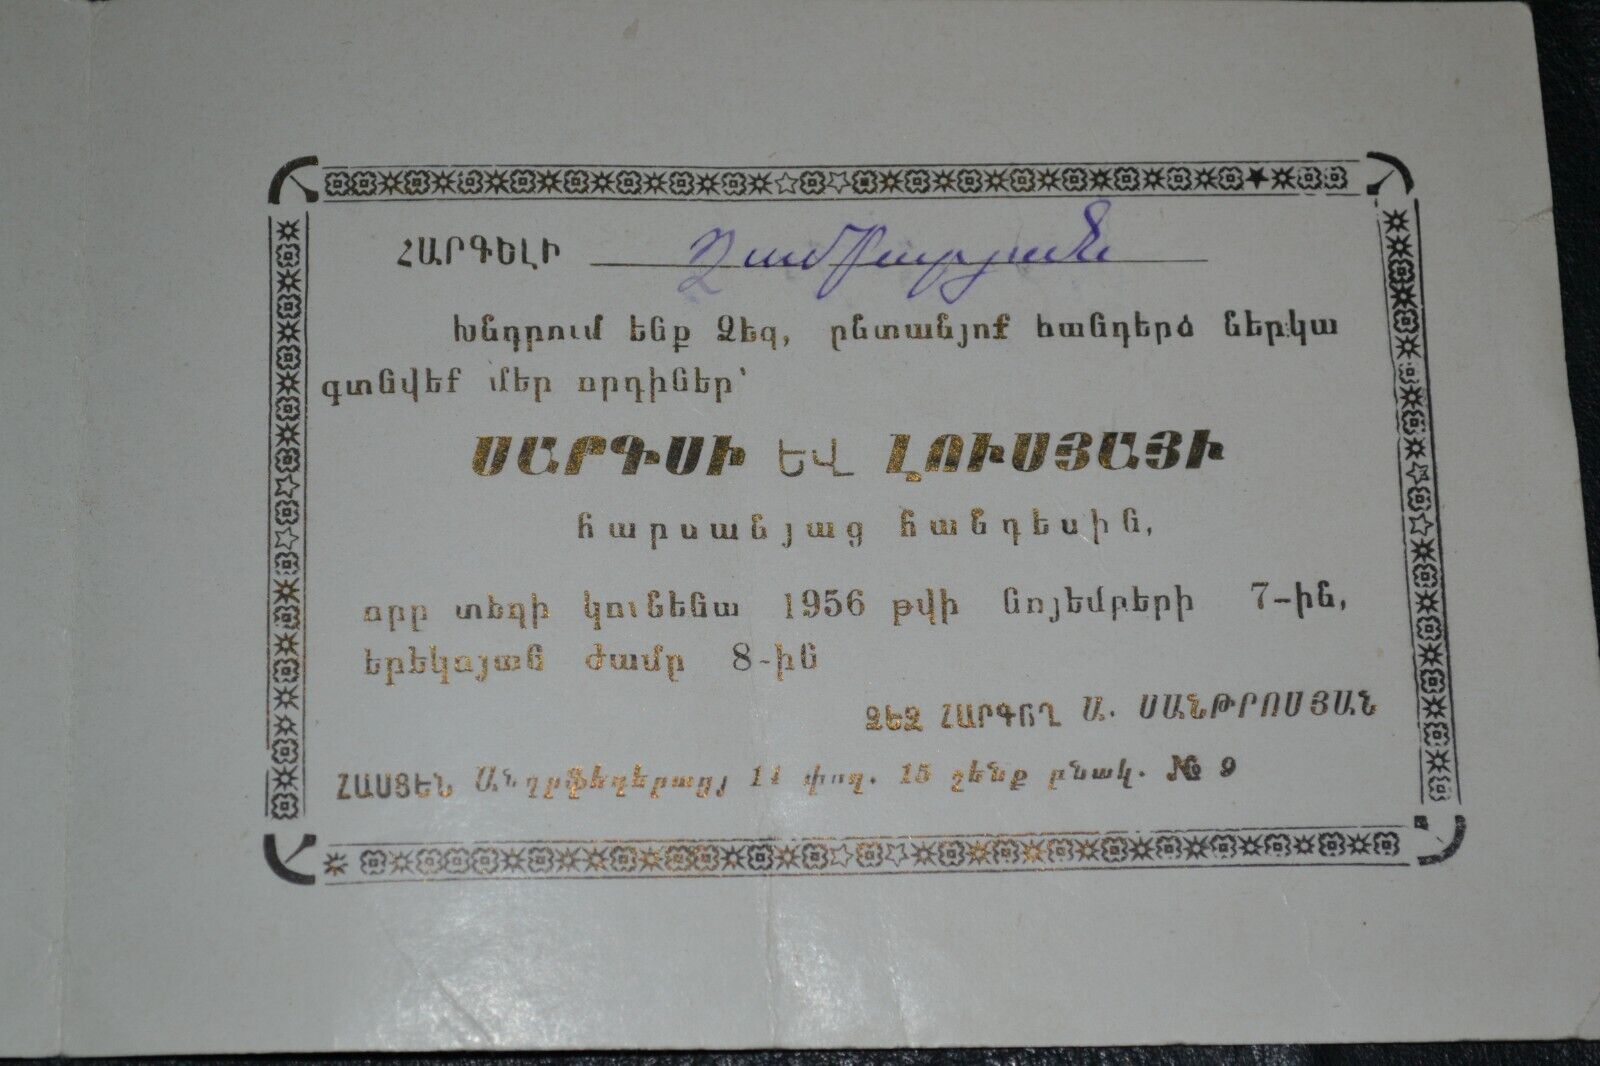 ՀԱՐԳԵԼԻ
Խնդրում ենք Ձեզ, ընտանյոք հանդերձ ներկա
գտնվեք մեր որդիներ՝
ՍԱՐԳՍԻ ԵՎ ԼՈՒՍՅԱՅԻ
հարսանյաց հանդեսին,
որը տեղի կունենա 1956 թվի նոյեմբերի 7-ին,
երեկոյան ժամը 8-ին
ՁԵԶ ՀԱՐԳՈՂ Ա. ՍԱՆԹՐՈՍՅԱՆ
ՀԱՍՑԵՆ 11 փող. 15 շենք բնակ. № 9